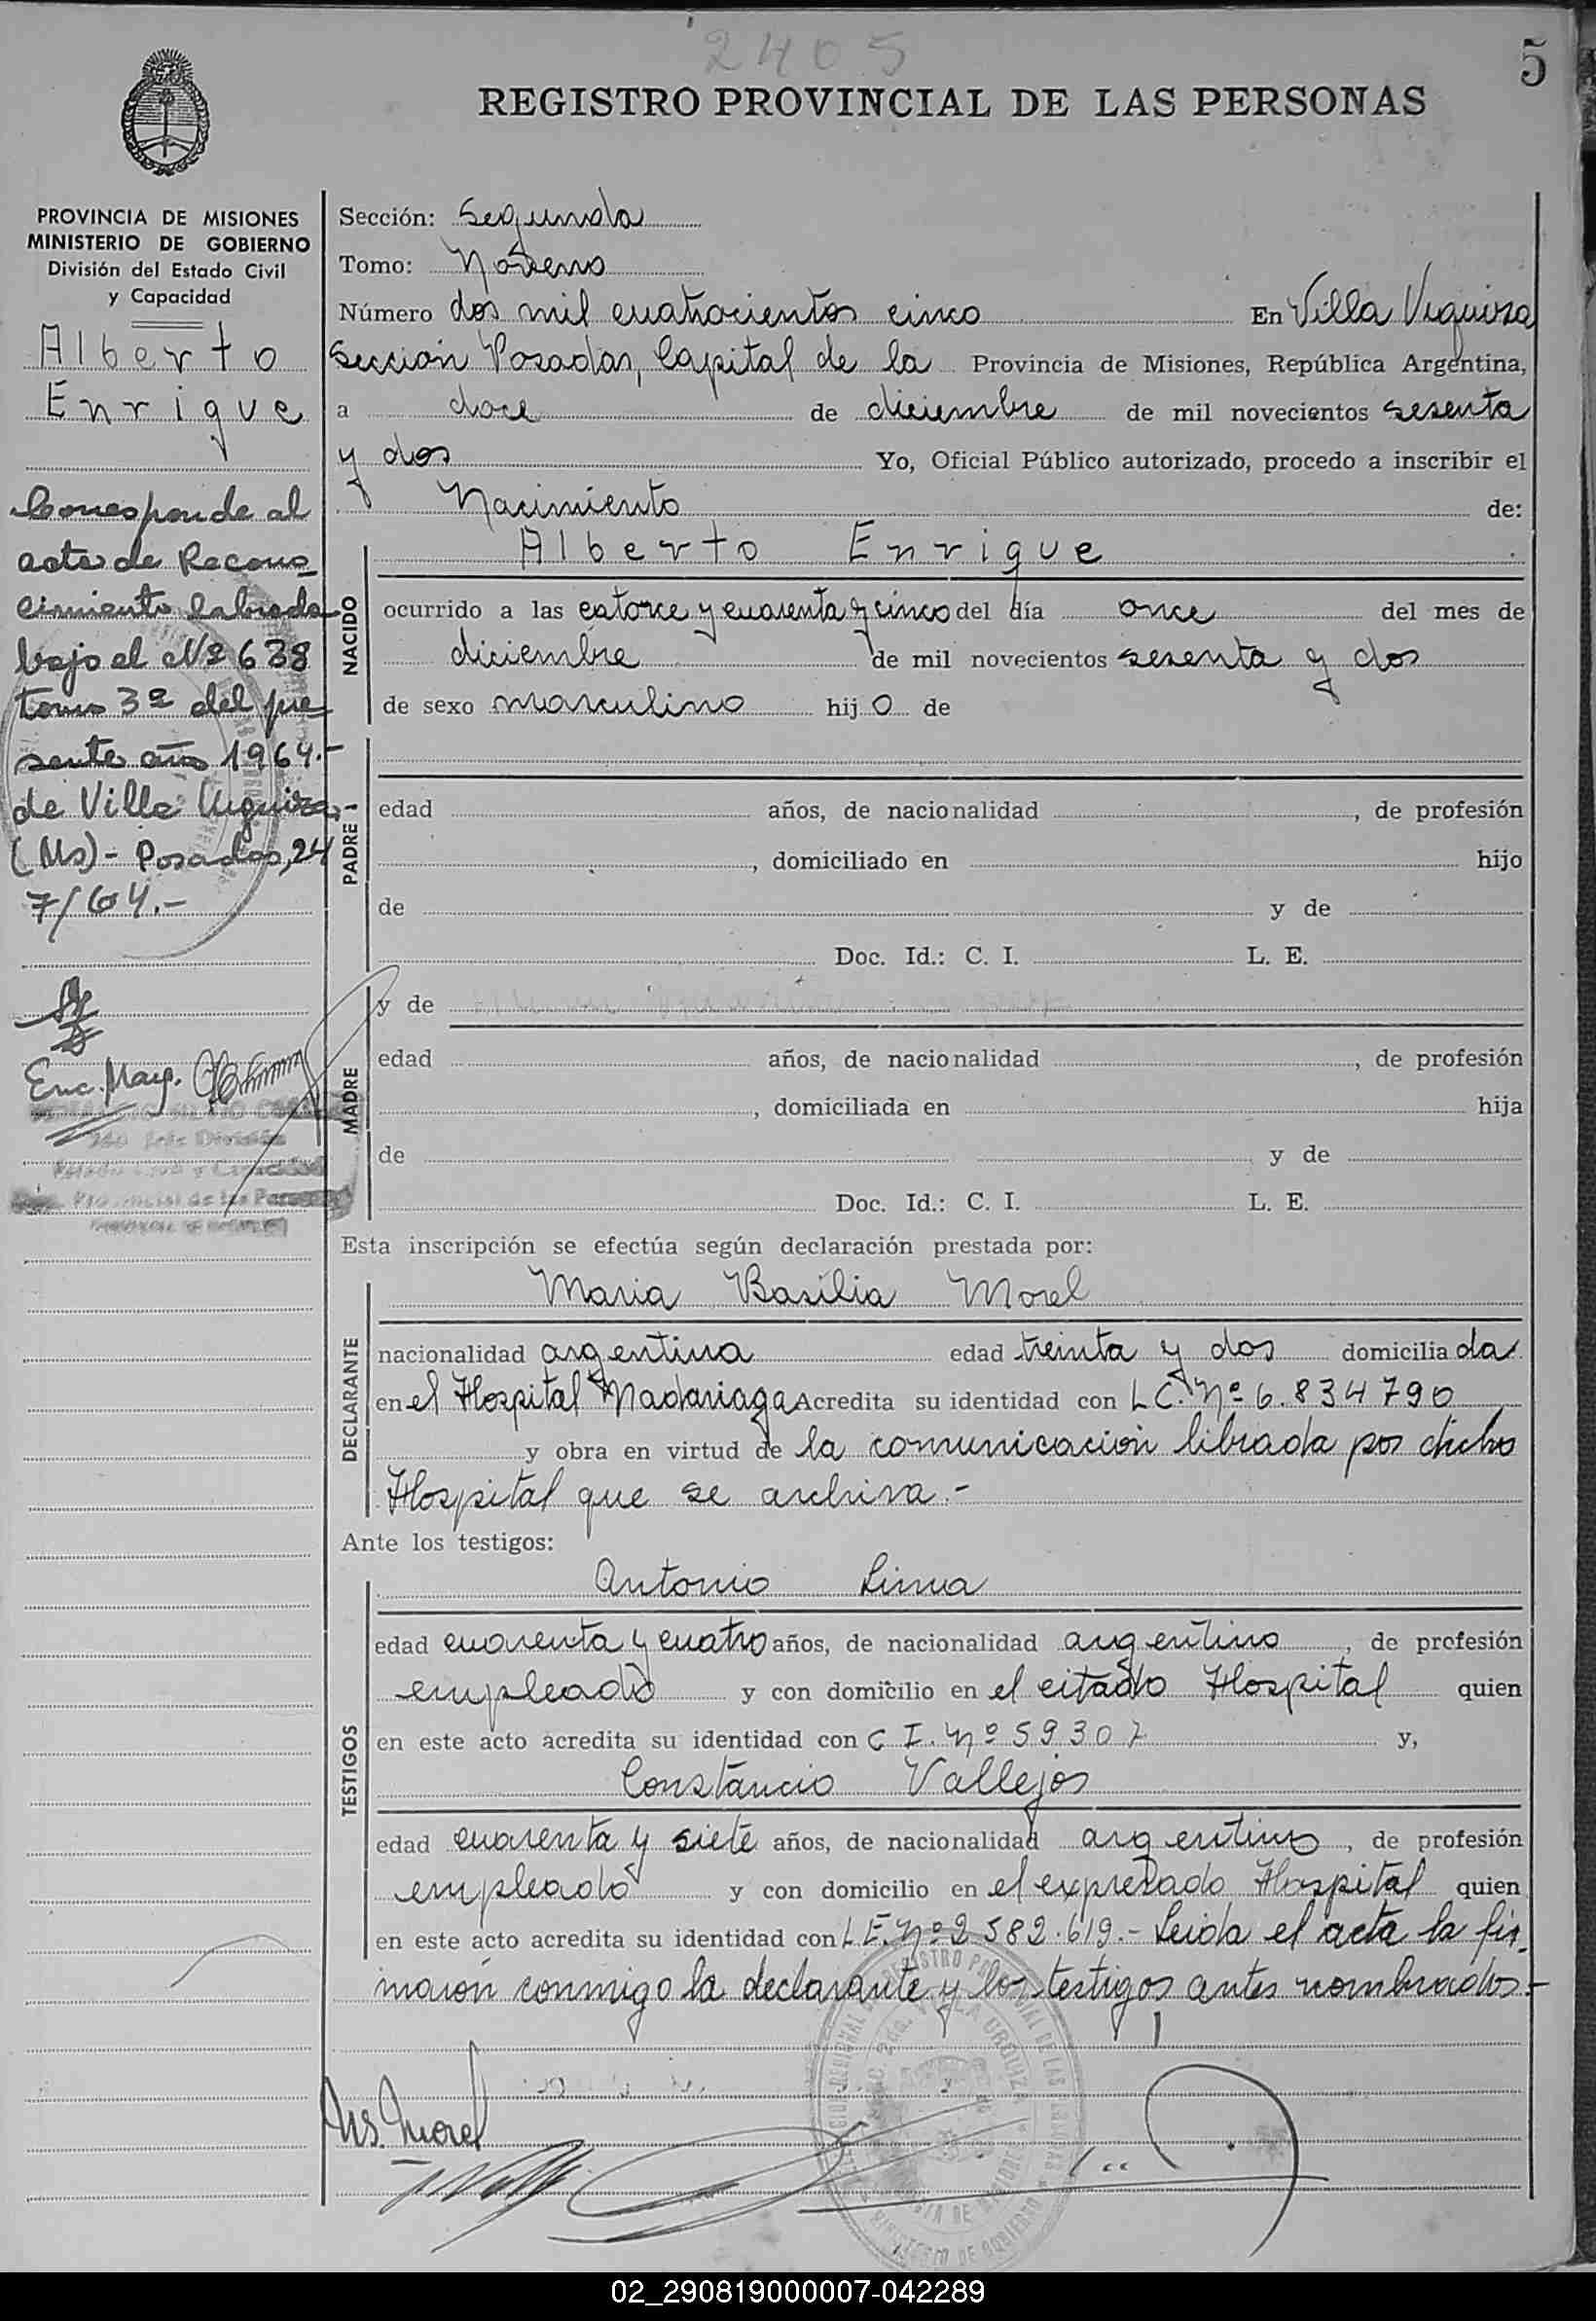 2405
5
REGISTRO PROVINCIAL DE LAS PERSONAS
PROVINCIA DE MISIONES
MINISTERIO DE GOBIERNO
División del Estado Civil
y Capacidad
Alberto
Enrique
Corresponde al
acta de Recono
cimiento labrada
bajo el Nº 638
tomo 3º del pre
sente año 1964.-
de Villa Urquiza,-
(Ms)- Posadas, 24
7/64.-
Enc. May.
Sección: Segunda
Tomo: Noveno
Número dos mil cuatrocientos cinco En Villa Urquiza
Sección Posadas, Capital de la Provincia de Misiones, República Argentina,
a doce de diciembre de mil novecientos sesenta
y dos Yo, Oficial Público autorizado, procedo a inscribir el
Nacimiento de:
Alberto Enrique
NACIDO
ocurrido a las catorce y cuarenta y cinco del día once del mes de
diciembre de mil novecientos sesenta y dos
de sexo masculino hijo de
PADRE
edad años, de nacionalidad , de profesión
, domiciliado en hijo
de y de
Doc. Id.: C. I. L. E.
MADRE
y de
edad años, de nacionalidad , de profesión
, domiciliada en hija
de y de
Doc. Id.: C. I. L. E.
Esta inscripción se efectúa según declaración prestada por:
DECLARANTE
Maria Basilia Morel
nacionalidad argentina edad treinta y dos domiciliada
en el Hospital Madariaga Acredita su identidad con L C. Nº 6.834790
y obra en virtud de la comunicación librada por dicho
Hospital que se archiva.-
Ante los testigos:
TESTIGOS
Antonio Lima
edad cuarenta y cuatro años, de nacionalidad argentino , de profesión
empleado y con domicilio en el citado Hospital quien
en este acto acredita su identidad con C I. Nº 59307 y,
Constancio Vallejos
edad cuarenta y siete años, de nacionalidad argentino , de profesión
empleado y con domicilio en el expresado Hospital quien
en este acto acredita su identidad con L E. Nº 2 582.619.- Leida el acta la fir-
maron conmigo la declarante y los testigos antes nombrados.-
Ms. Morel
02_290819000007-042289